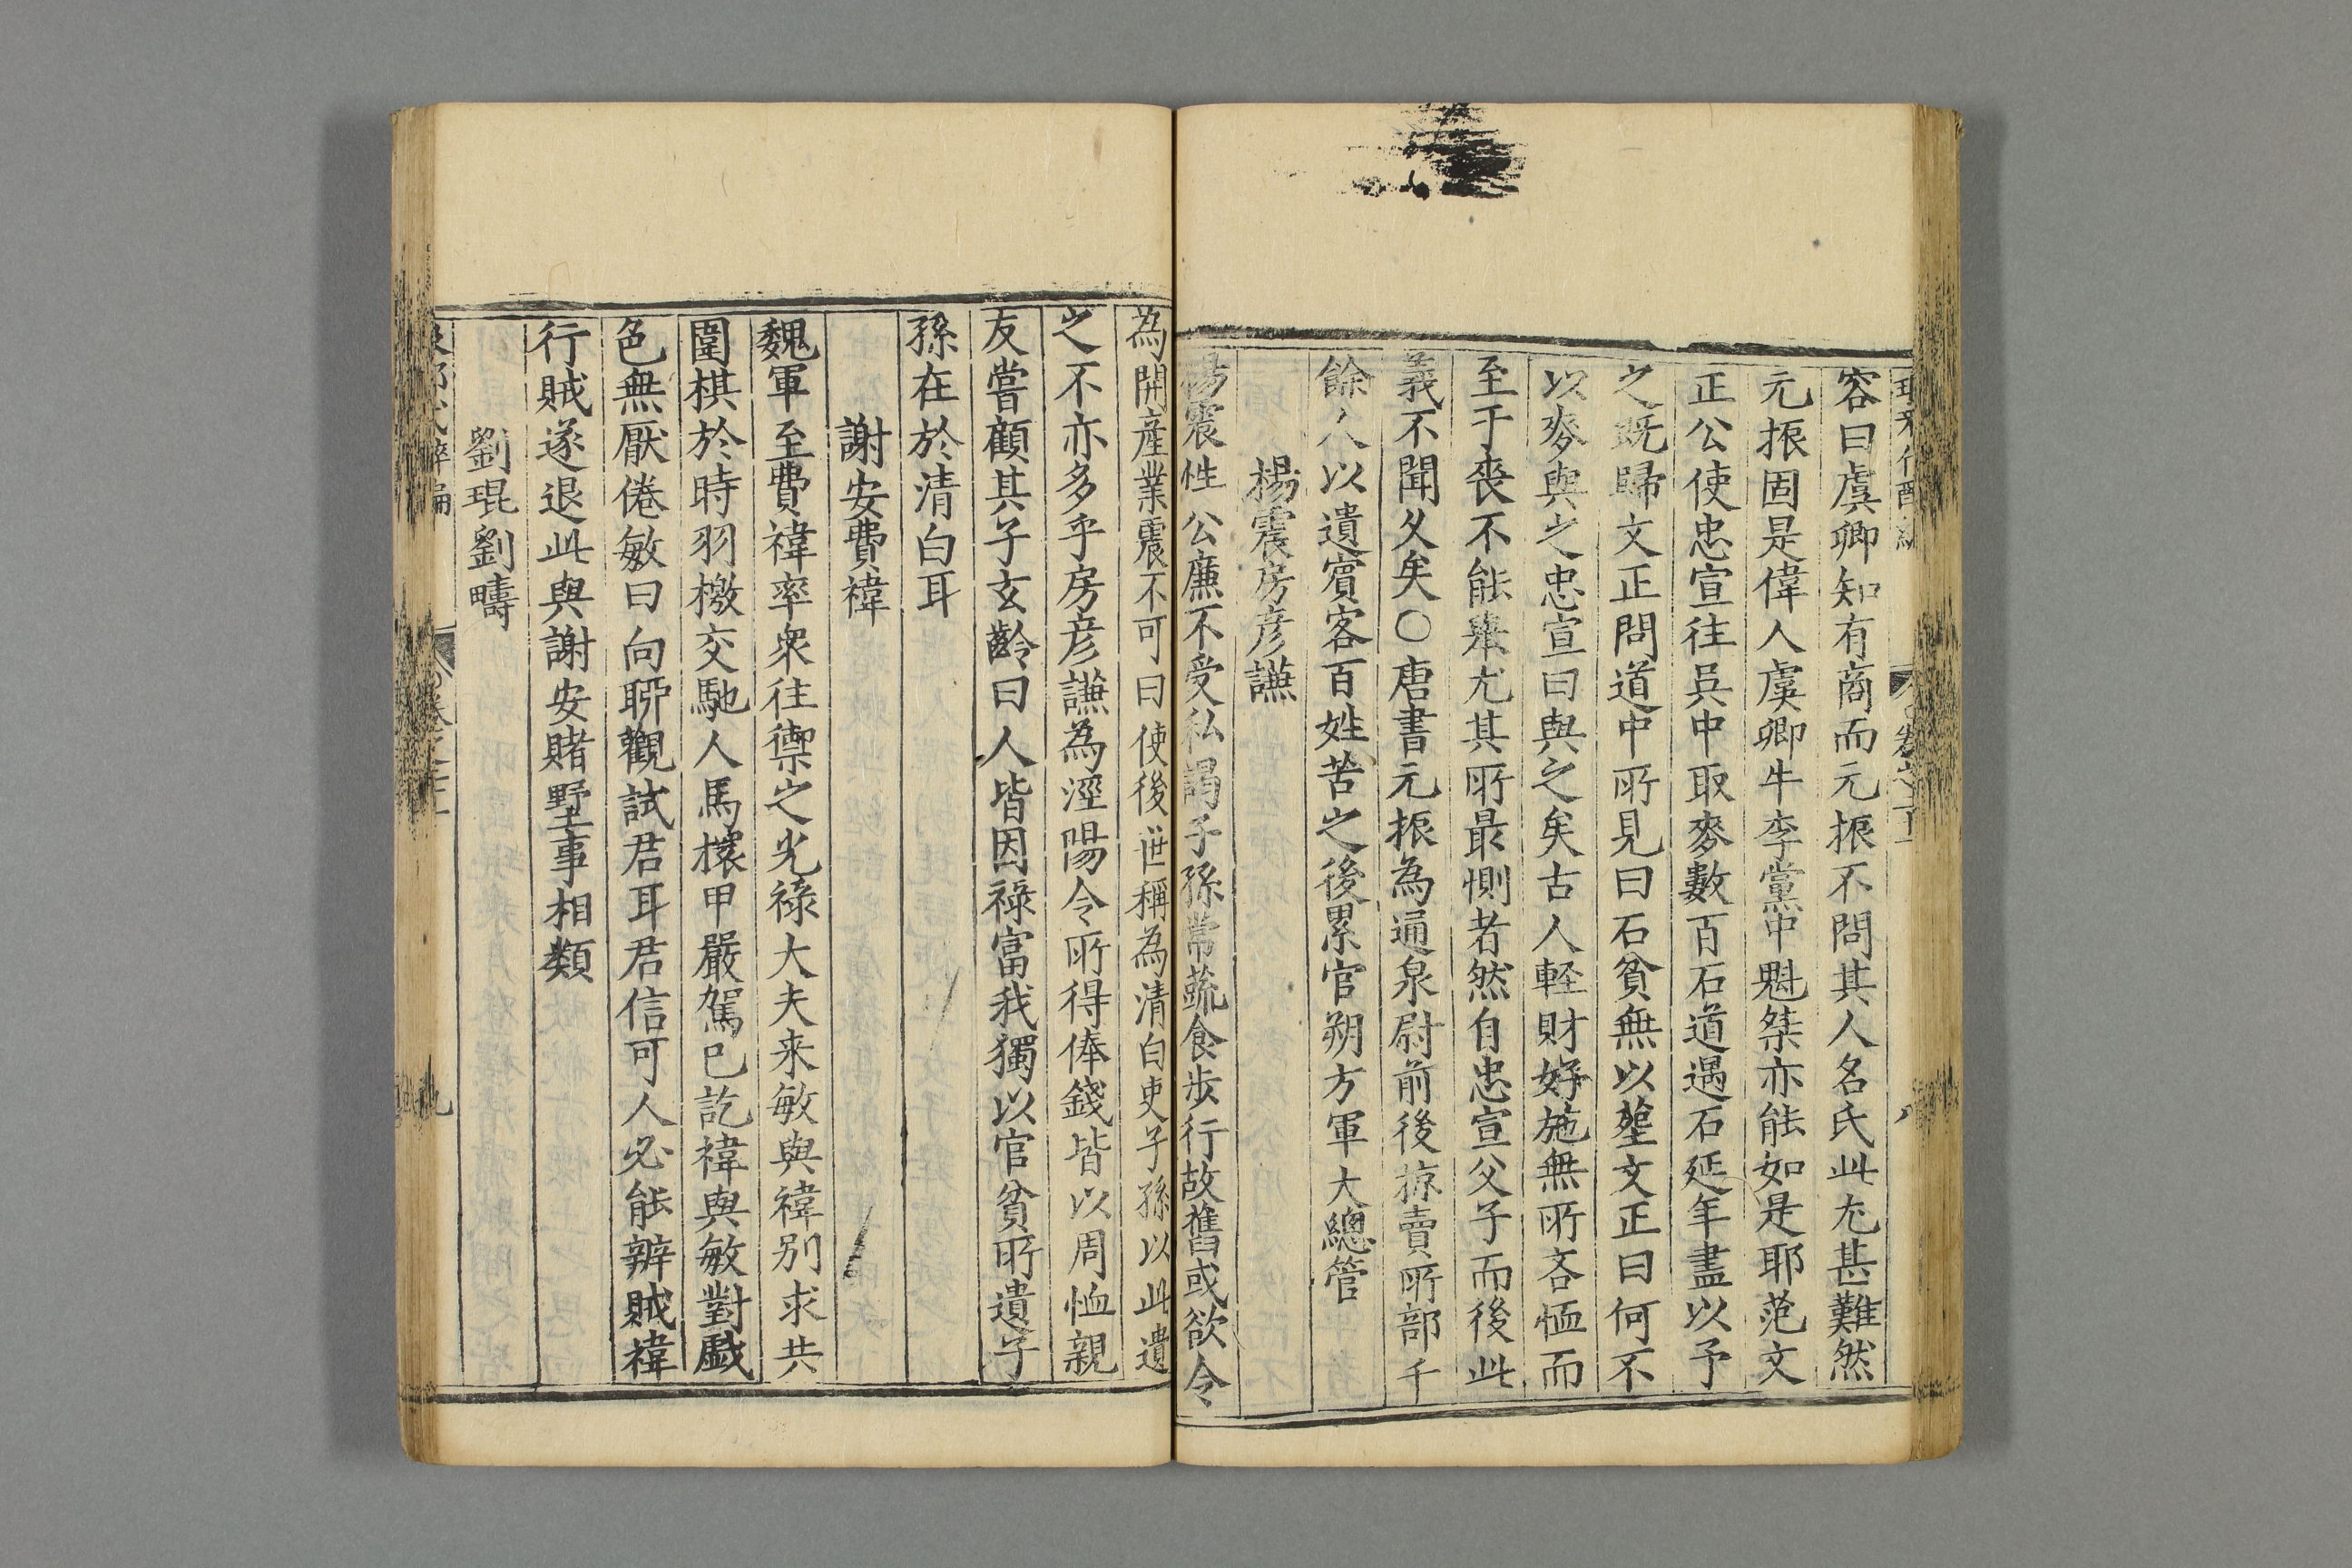 容曰虞卿知有商而元振不問其人名氏此尤甚難然
元振固是偉人虞卿牛李黨中魁桀亦能如是耶范文
正公使忠宣往吳中取麥數百石道遇石延年盡以予
之既歸文正問道中所見曰石貧無以塟文正曰何不
以麥與之忠宣曰與之矣古人軽財好施無所吝恤而
至于喪不能舉尤其所最惻者然自忠宣父子而後此
義不聞久矣○唐書元振為通泉尉前後掠賣所部千
餘人以遺賓客百姓苦之後累官朔方軍大總管
楊震房彦謙
楊震性公廉不受私謁子孫常蔬食步行故舊或欲令
為開產業震不可曰使後世稱為清白吏子孫以此遺
之不亦多乎房彦謙為涇陽令所得俸錢皆以周恤親
友嘗顧其子玄齡曰人皆因祿富我獨以官貧所遺子
孫在於清白耳
謝安費禕
魏軍至費禕率衆往禦之光祿大夫来敏與禕別求共
圍棋於時羽檄交馳人馬擐甲嚴駕已訖禕與敏對戲
色無厭倦敏曰向聊觀試君耳君信可人必能辦賊禕
行賊遂退此與謝安賭墅事相類
劉琨劉疇